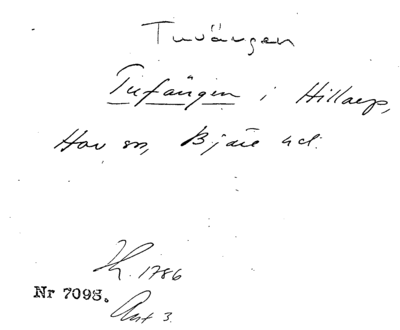 Tuvängen
Tufängen i Hillarp,
Hov sn, Bjäre hd.
1786
Nr 7098.
Akt 3.